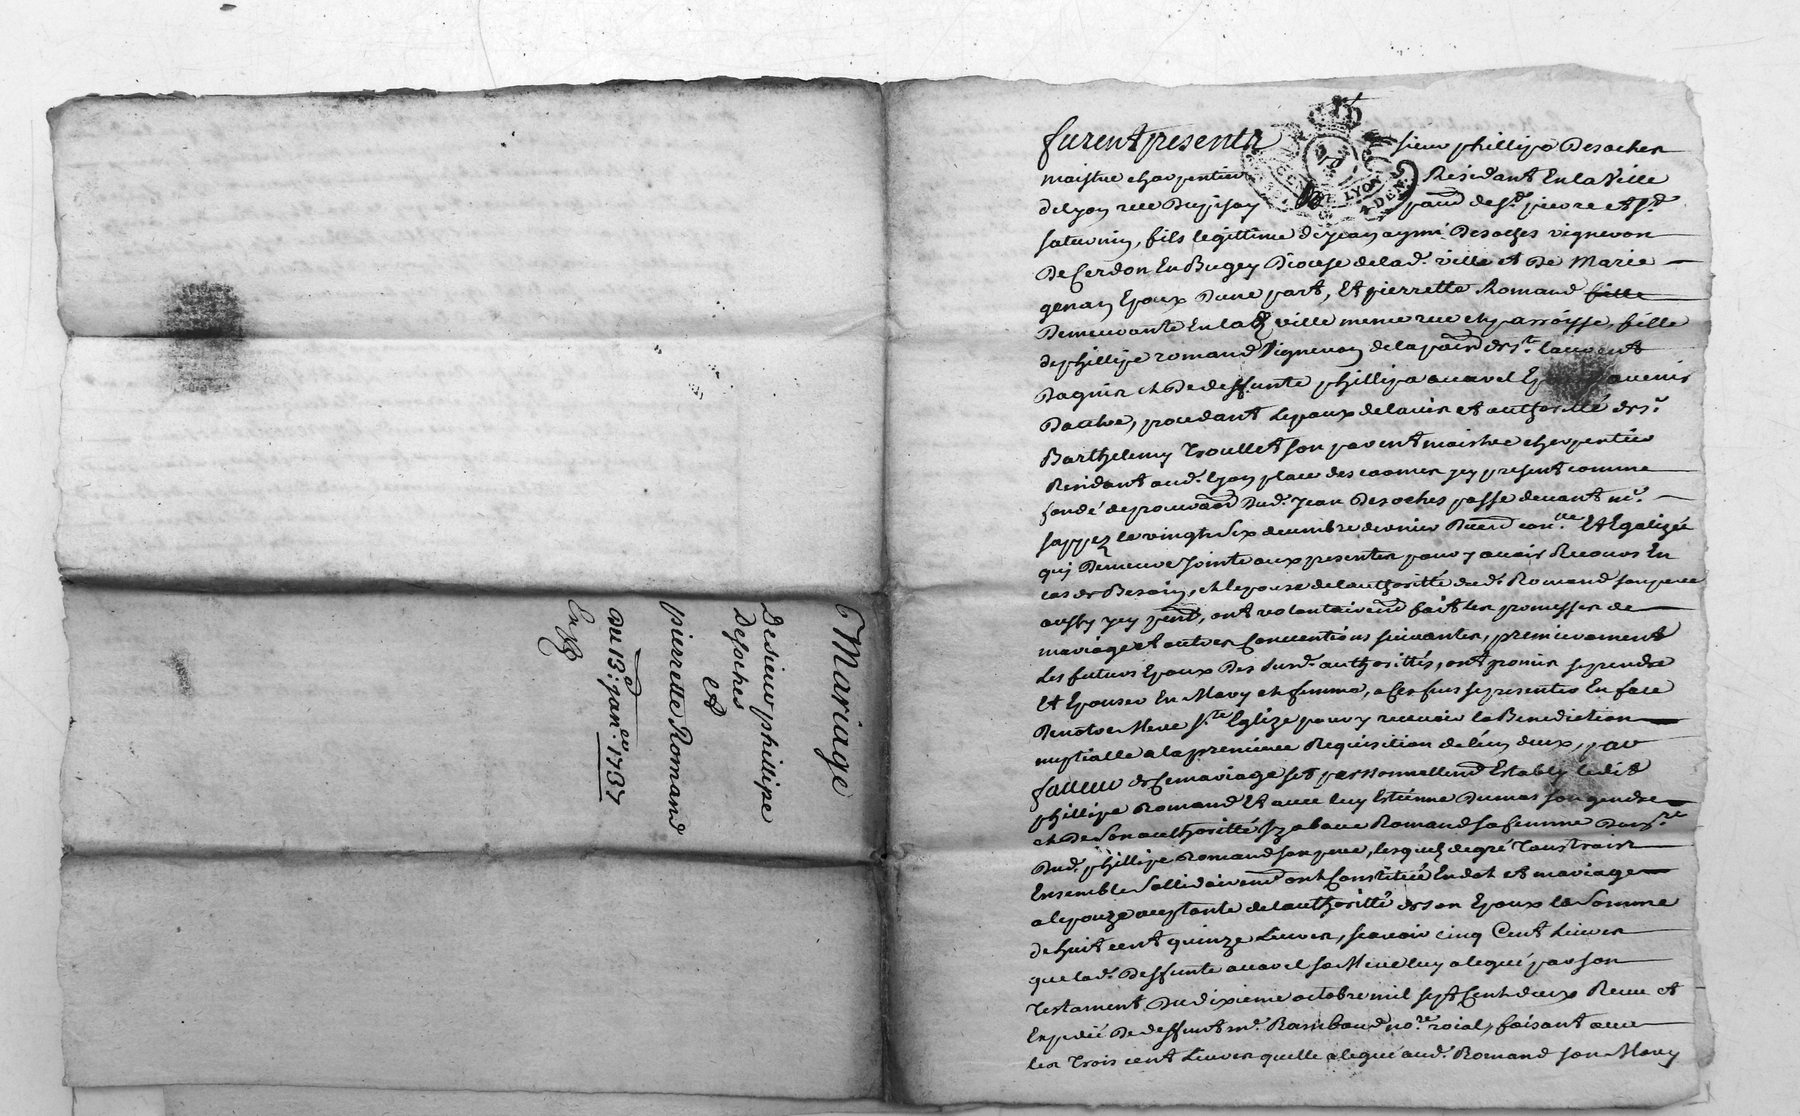 Mariage
De sieur phillipe
Desoches
et
pierrette Romand
du 13e: janer. 1737
Exp
furent presents sieur phillipe Desoches
maistre charpentier Residant En la Ville
de lyon rue Dupisay parr de st. pierre et st.
saturnin, fils legittime de jean aymé Desoches vigneron
De Cerdon En Bugey Diocese de lad. ville et De Marie
genay Epoux Dune part, Et pierrette Romand fille
Demeurante En lad. ville meme rue et parroisse, fille
de phillipe romand Vigneron de la parr de st. laurent
Dagnin et De deffunte phillipa auavel Epouse avenir
Dautre, procedant Lepoux de lavis et authorité de sr.
Barthelemy Troullet son parent maistre charpentier
Residant aud. lyon place des carmes jcy present comme
fondé de procuraon Dud. Jean Desoches passé devant me.
le vingt Six decembre dernier Et Egalizée
qui Demeure Jointe aux presentes pour y avoir Recours En
cas de Besoin, et lepouse de lauthorité dud. Romand son pere
aussy jcy pnt, ont volontairemt fait les promesses de
mariage et autres Conventions suivantes, premierement
Les futurs Epoux Des susd. authorittés, ont promis se prendre
Et Epouser En Mary et femme, a ces fins se presenter En face
De notre Mere ste. Eglize pour y recevoir la Benediction
nuptialle a la premiere Requisition de leun deux, par
faveur de Ce mariage sest personnellemt Estably ledit
phillipe Romand Et avec luy Estienne Dumas son gendre
et De Son authoritté jzabaue Romand sa femme
Dud. phillipe Romand son pere, lesquels de gré Tous trois
Ensemble Sollidairemt ont Constitué En dot et mariage
a lepouze acceptante de lauthoritté de son Epoux la Somme
de huit cent quinze Livres, scavoir cinq Cent Livres
que lad. Deffunte auavel sa Mere luy a legué par son
Testament Du dixieme octobre mil sept Cent deux Receu et
Expedié De deffunt me. Rambaud nore. roial, faisant avec
les Trois cent Livres quelle a legué aud. Romand son Mary